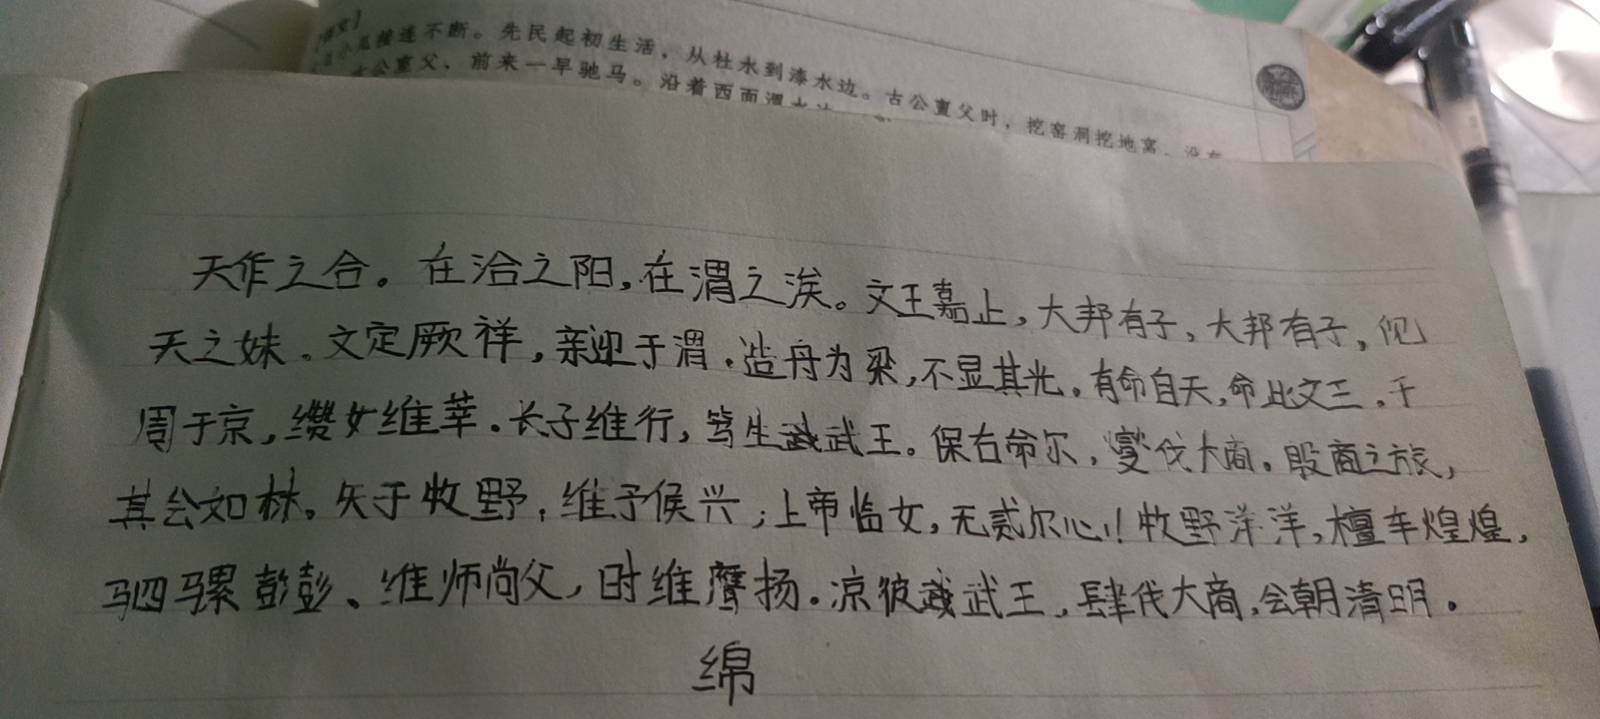 小瓜接连不断。先民起初生活，从杜水到漆水边。古公亶父时，挖窑洞挖地窖，没有
公亶父，前来一早驰马。沿着西面渭水
天作之合。在洽之阳，在渭之涘。文王嘉止，大邦有子，大邦有子，伣
天之妹。文定厥祥，亲迎于渭。造舟为梁，不显其光。有命自天，命此文王。于
周于京，缵女维莘。长子维行，笃生武王。保右命尔，燮伐大商。殷商之旅，
其会如林。矢于牧野，维予侯兴；上帝临女，无贰尔心！牧野洋洋，檀车煌煌，
驷騵彭彭、维师尚父，时维鹰扬。凉彼武王，肆伐大商，会朝清明。
绵